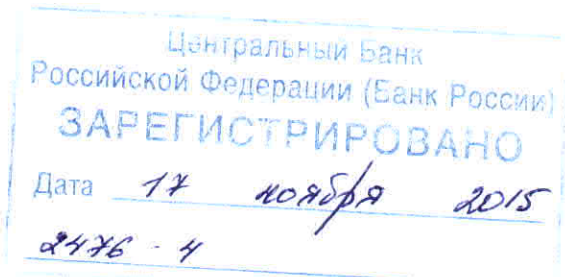 Центральный Банк
Российской Федерации (Банк России)
ЗАРЕГИСТРИРОВАНО
Дата 17 ноября 2015
2476-4